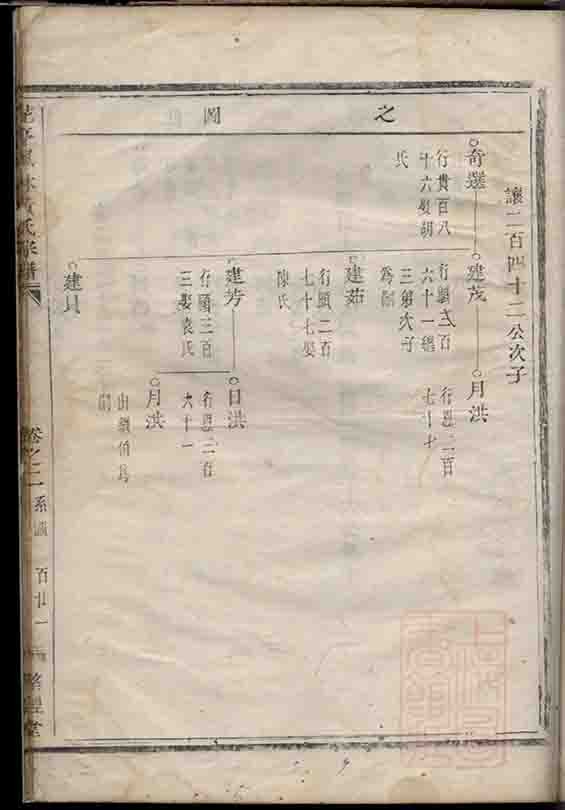 之
圖
讓二百四十二公次子
奇選
行貫百八
十六娶胡
氏
建茂
六十一繼
三弟次子
為嗣
月洪
行恩二百
七十七
建茹
行顯二百
七十七娶
陳氏
建芳
行顯三百
三娶袁氏
日洪
行恩二百
六十一
月洪
出繼伯為
嗣
建貝
氏宗譜
卷之二
系圖
百廿一
堂